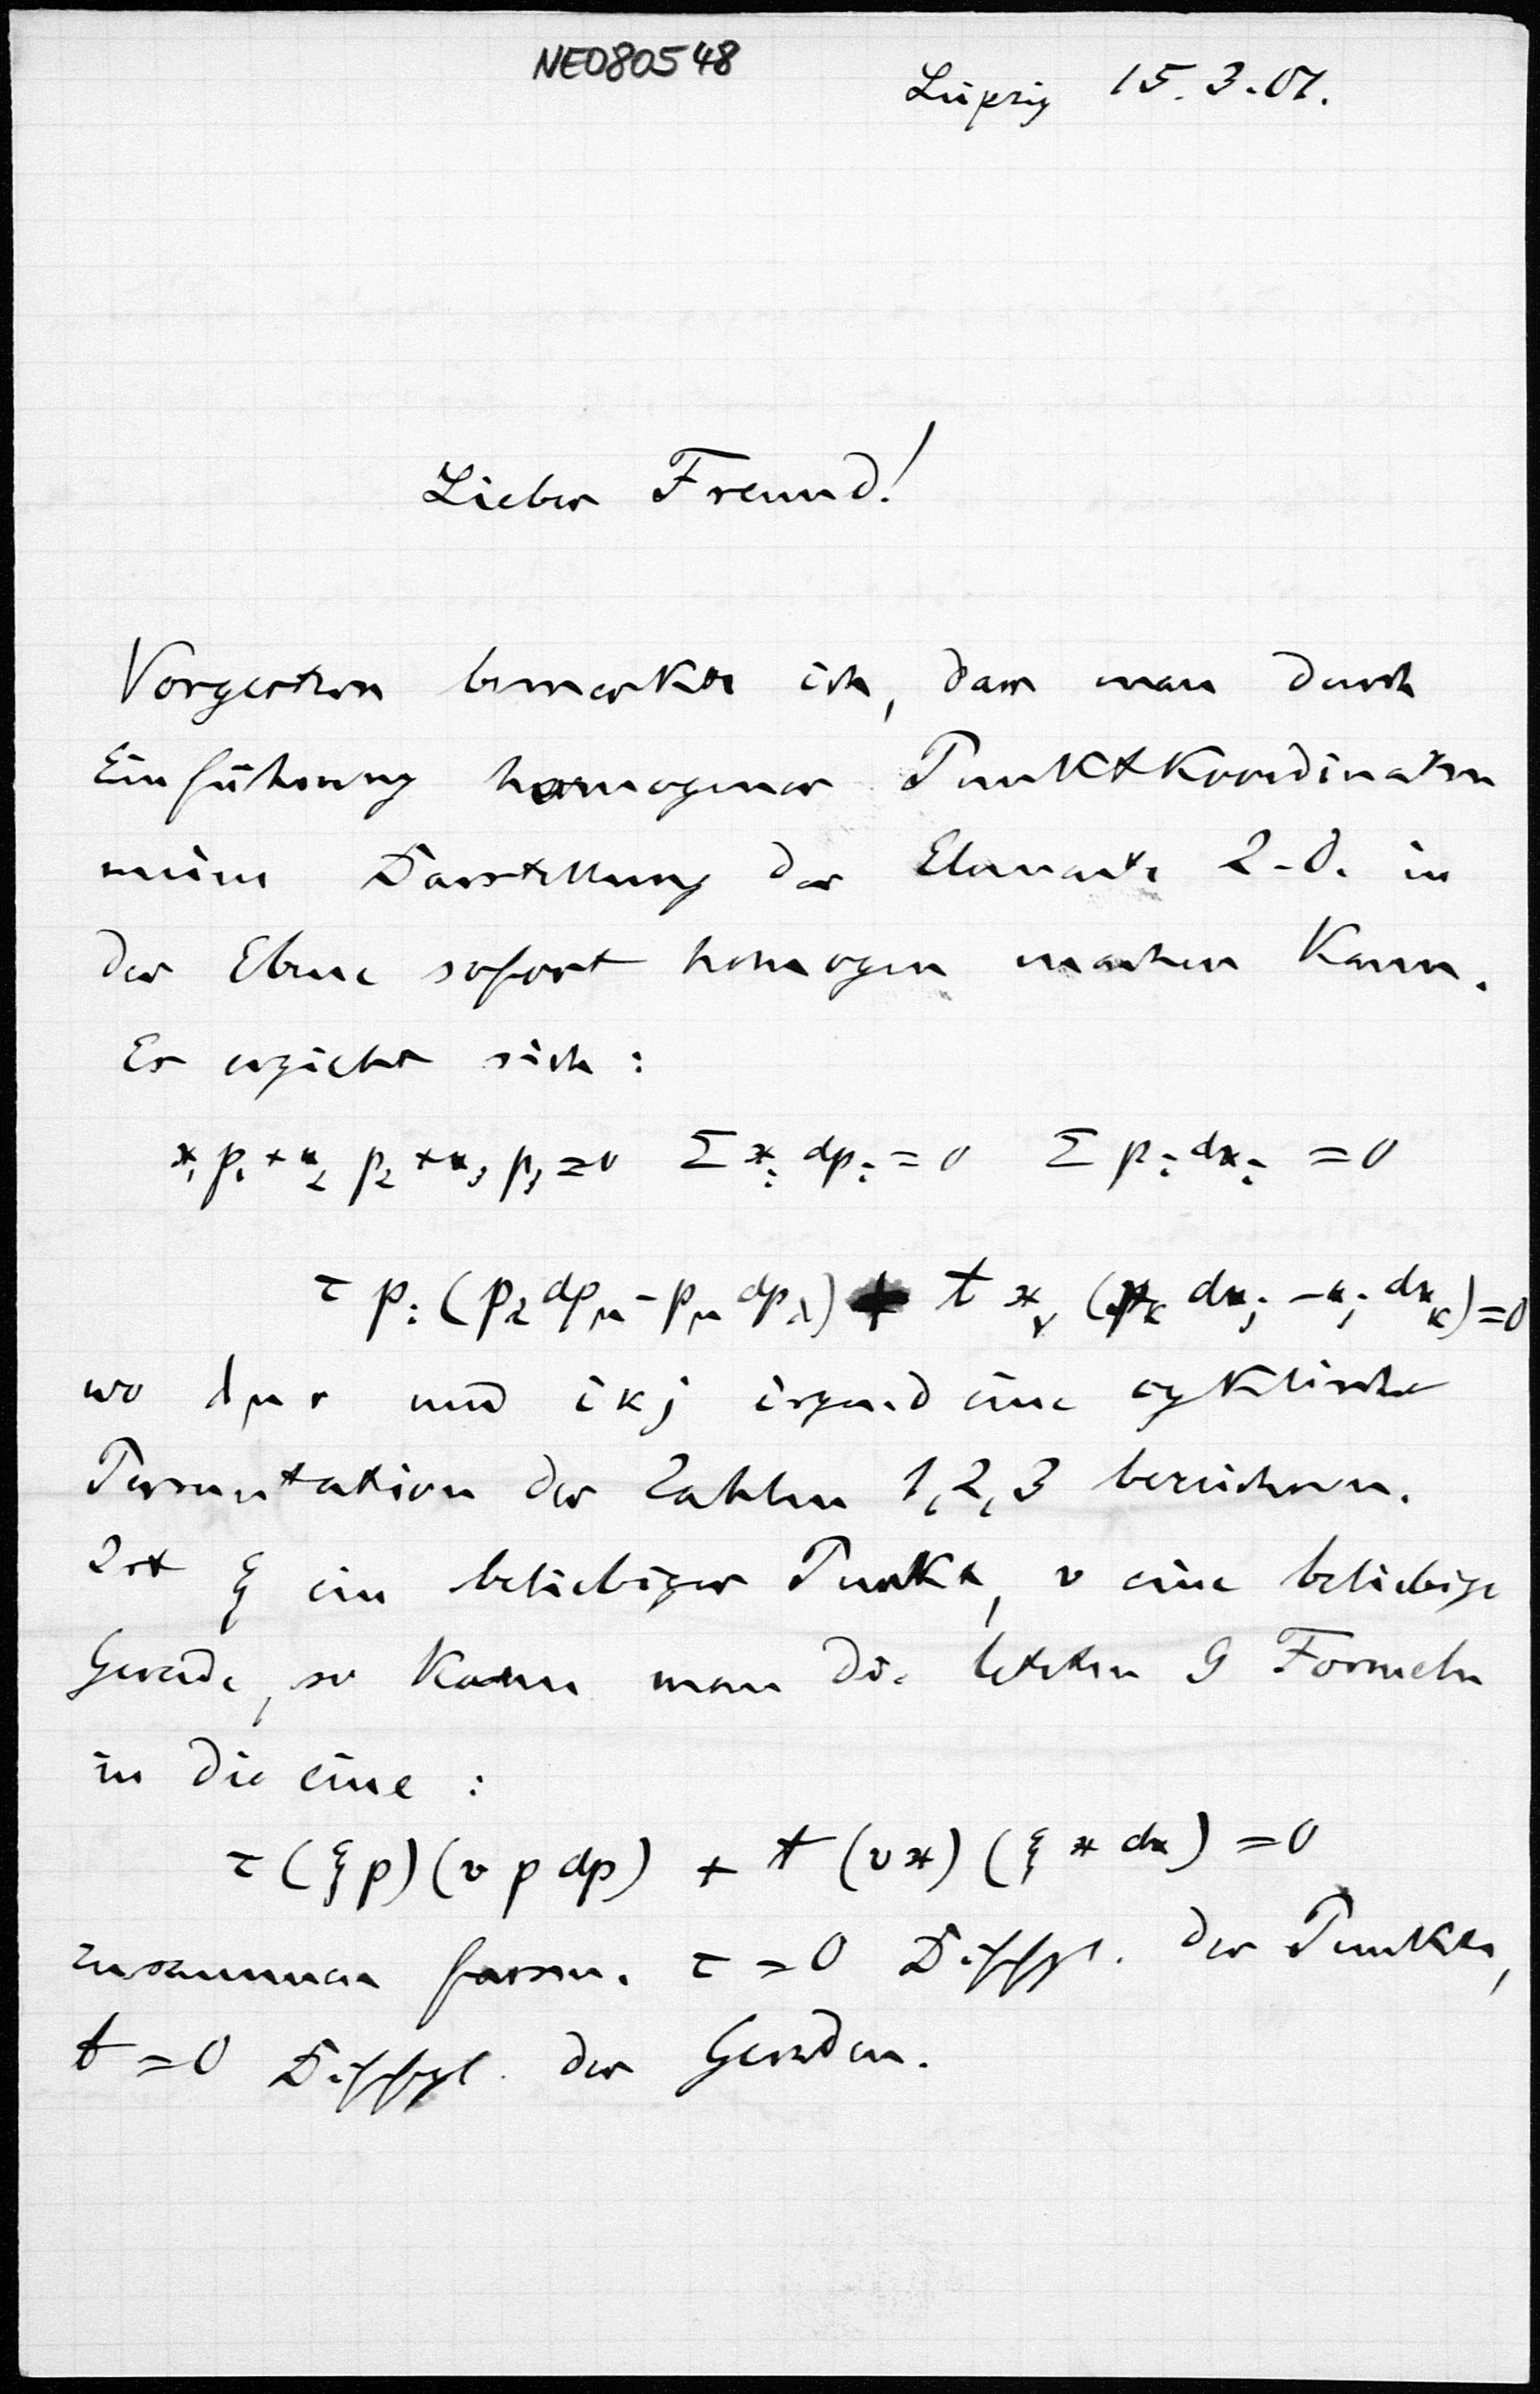 NE080548
Leipzig 15.3.01.
Lieber Freund!
Vorgestern bemerkte ich, dass man durch
Einführung homogener Punktkoordinaten
meine Darstellung der Elemente 2. O. in
der Ebene sofort homogen machen kann.
Es ergiebt sich:
x₁ p₁ + x₂ p₂ + x₃ p₃ = 0 Σ xᵢ dpᵢ = 0 Σ pᵢ dxᵢ = 0
τ pᵢ (p_λ dp_μ - p_μ dp_λ) + t x_ν (x_κ dx_j - x_j dx_κ) = 0
wo λ μ ν und i κ j irgend eine cyklische
Permutation der Zahlen 1, 2, 3 bezeichnen.
Ist ξ ein beliebiger Punkt, v eine beliebige
Gerade, so kann man die letzten 9 Formeln
in die eine:
τ (ξ p) (v p dp) + t (v x) (ξ x dx) = 0
zusammen fassen. τ = 0 Diffgl. der Punkte,
t = 0 Diffgl. der Geraden.